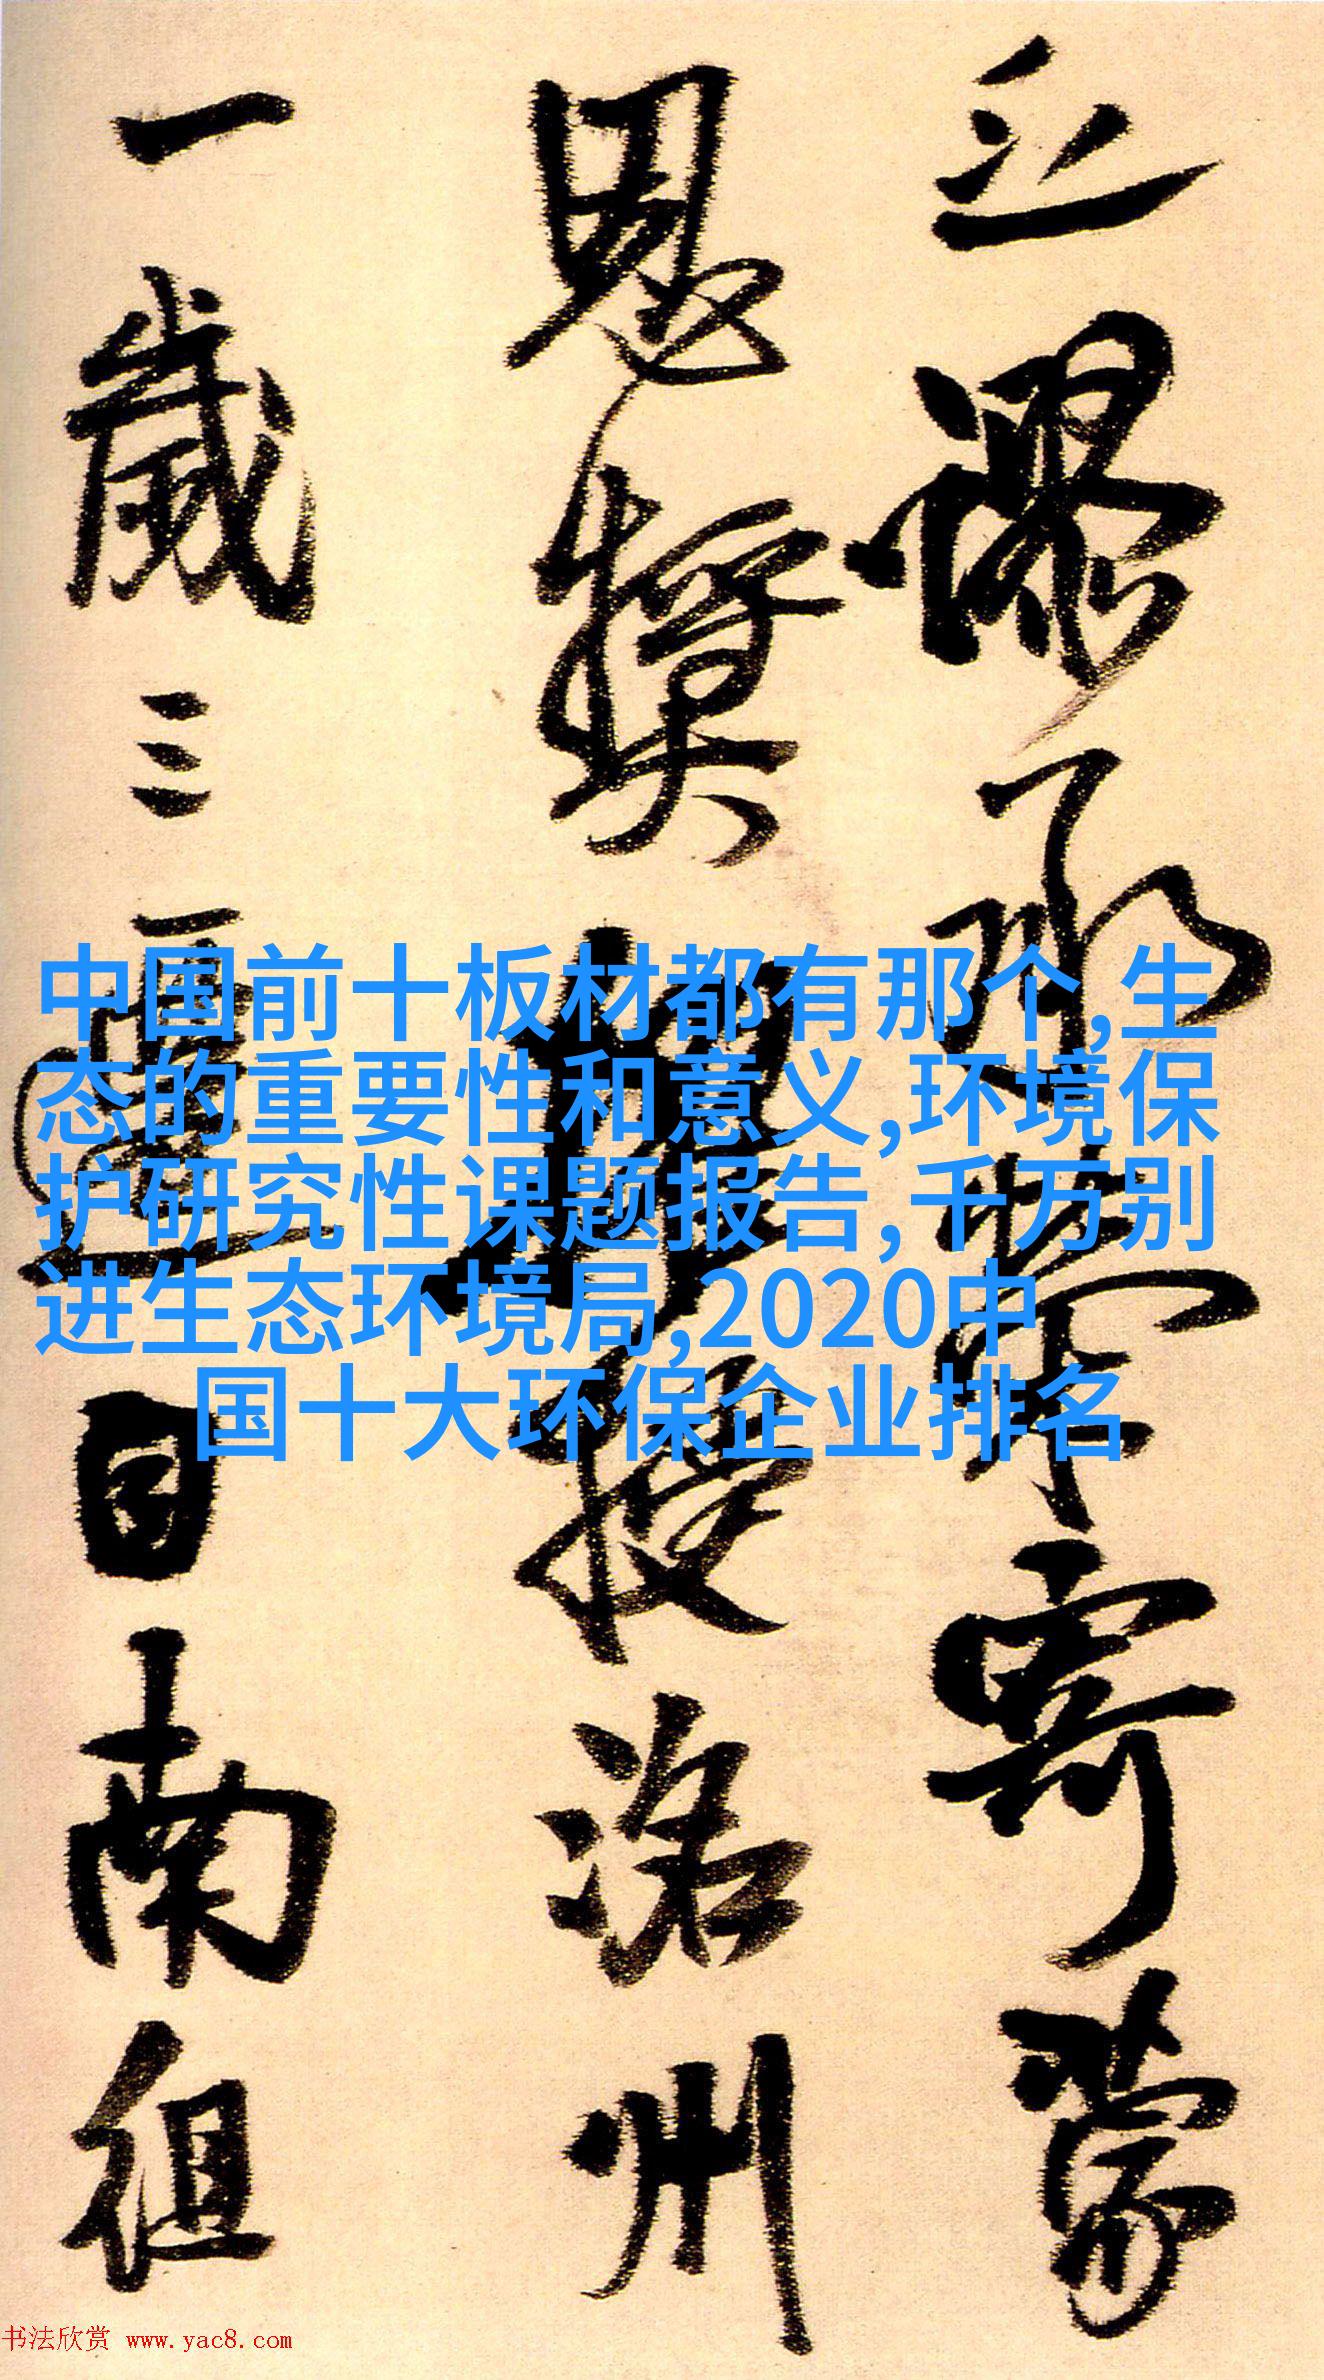 謬承榮寄蒙
恩獎擢授洛州
一歲三遷自南徂
中国前十板材都有那个,生
态的重要性和意义,环境保
护研究性课题报告,千万别
进生态环境局,2020中
国十大环保企业排名
书法欣赏 www.yac8.com